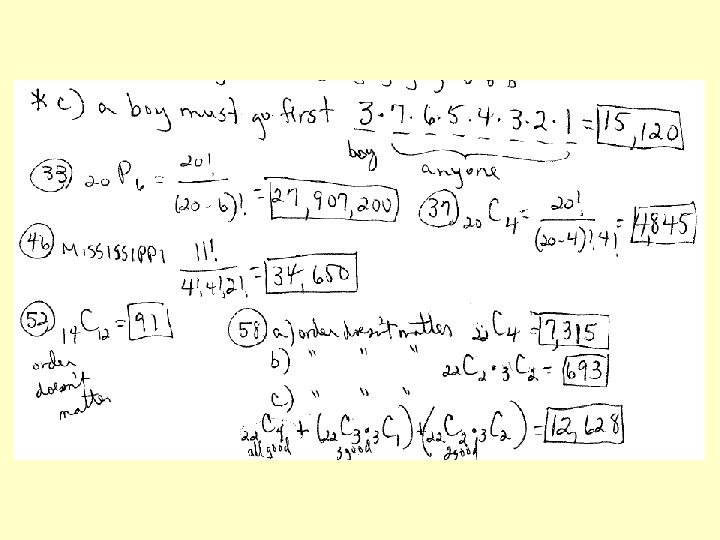 * c) a boy must go first 3·7·6·5·4·3·2·1 = 15,120
boy anyone
33) 20P6 = 20!/(20-6)! = 27,907,200
37) 20C4 = 20!/(20-4)!·4! = 4,845
46) MISSISSIPPI 11!/4!·4!·2! = 34,650
52) 14C12 = 91
order
doesn't
matter
58) a) order doesn't matter 22C4 = 7,315
b) " " " 22C2·3C2 = 693
c) " " "
22C4 + (22C3·3C1) + (22C2·3C2) = 12,628
all good 3good 2good